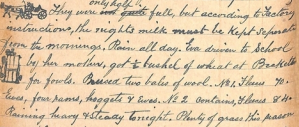 only half?
They were not quite full, but according to Factory
instructions, the night's milk must be kept separate
in the mornings. Rain all day. Eva driven to School
by her mother, got ½ bushel of wheat at Bracketts
for fowls. Pressed two bales of wool. No 1. Fleeces 70.
Ewes, four rams, hoggets & ewes. No 2 contains, Fleeces 84.
Raining heavy & steady tonight. Plenty of grass this season